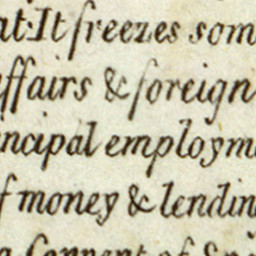 at: It freezes som
ffairs & foreign
incipal employm
f money & lendin